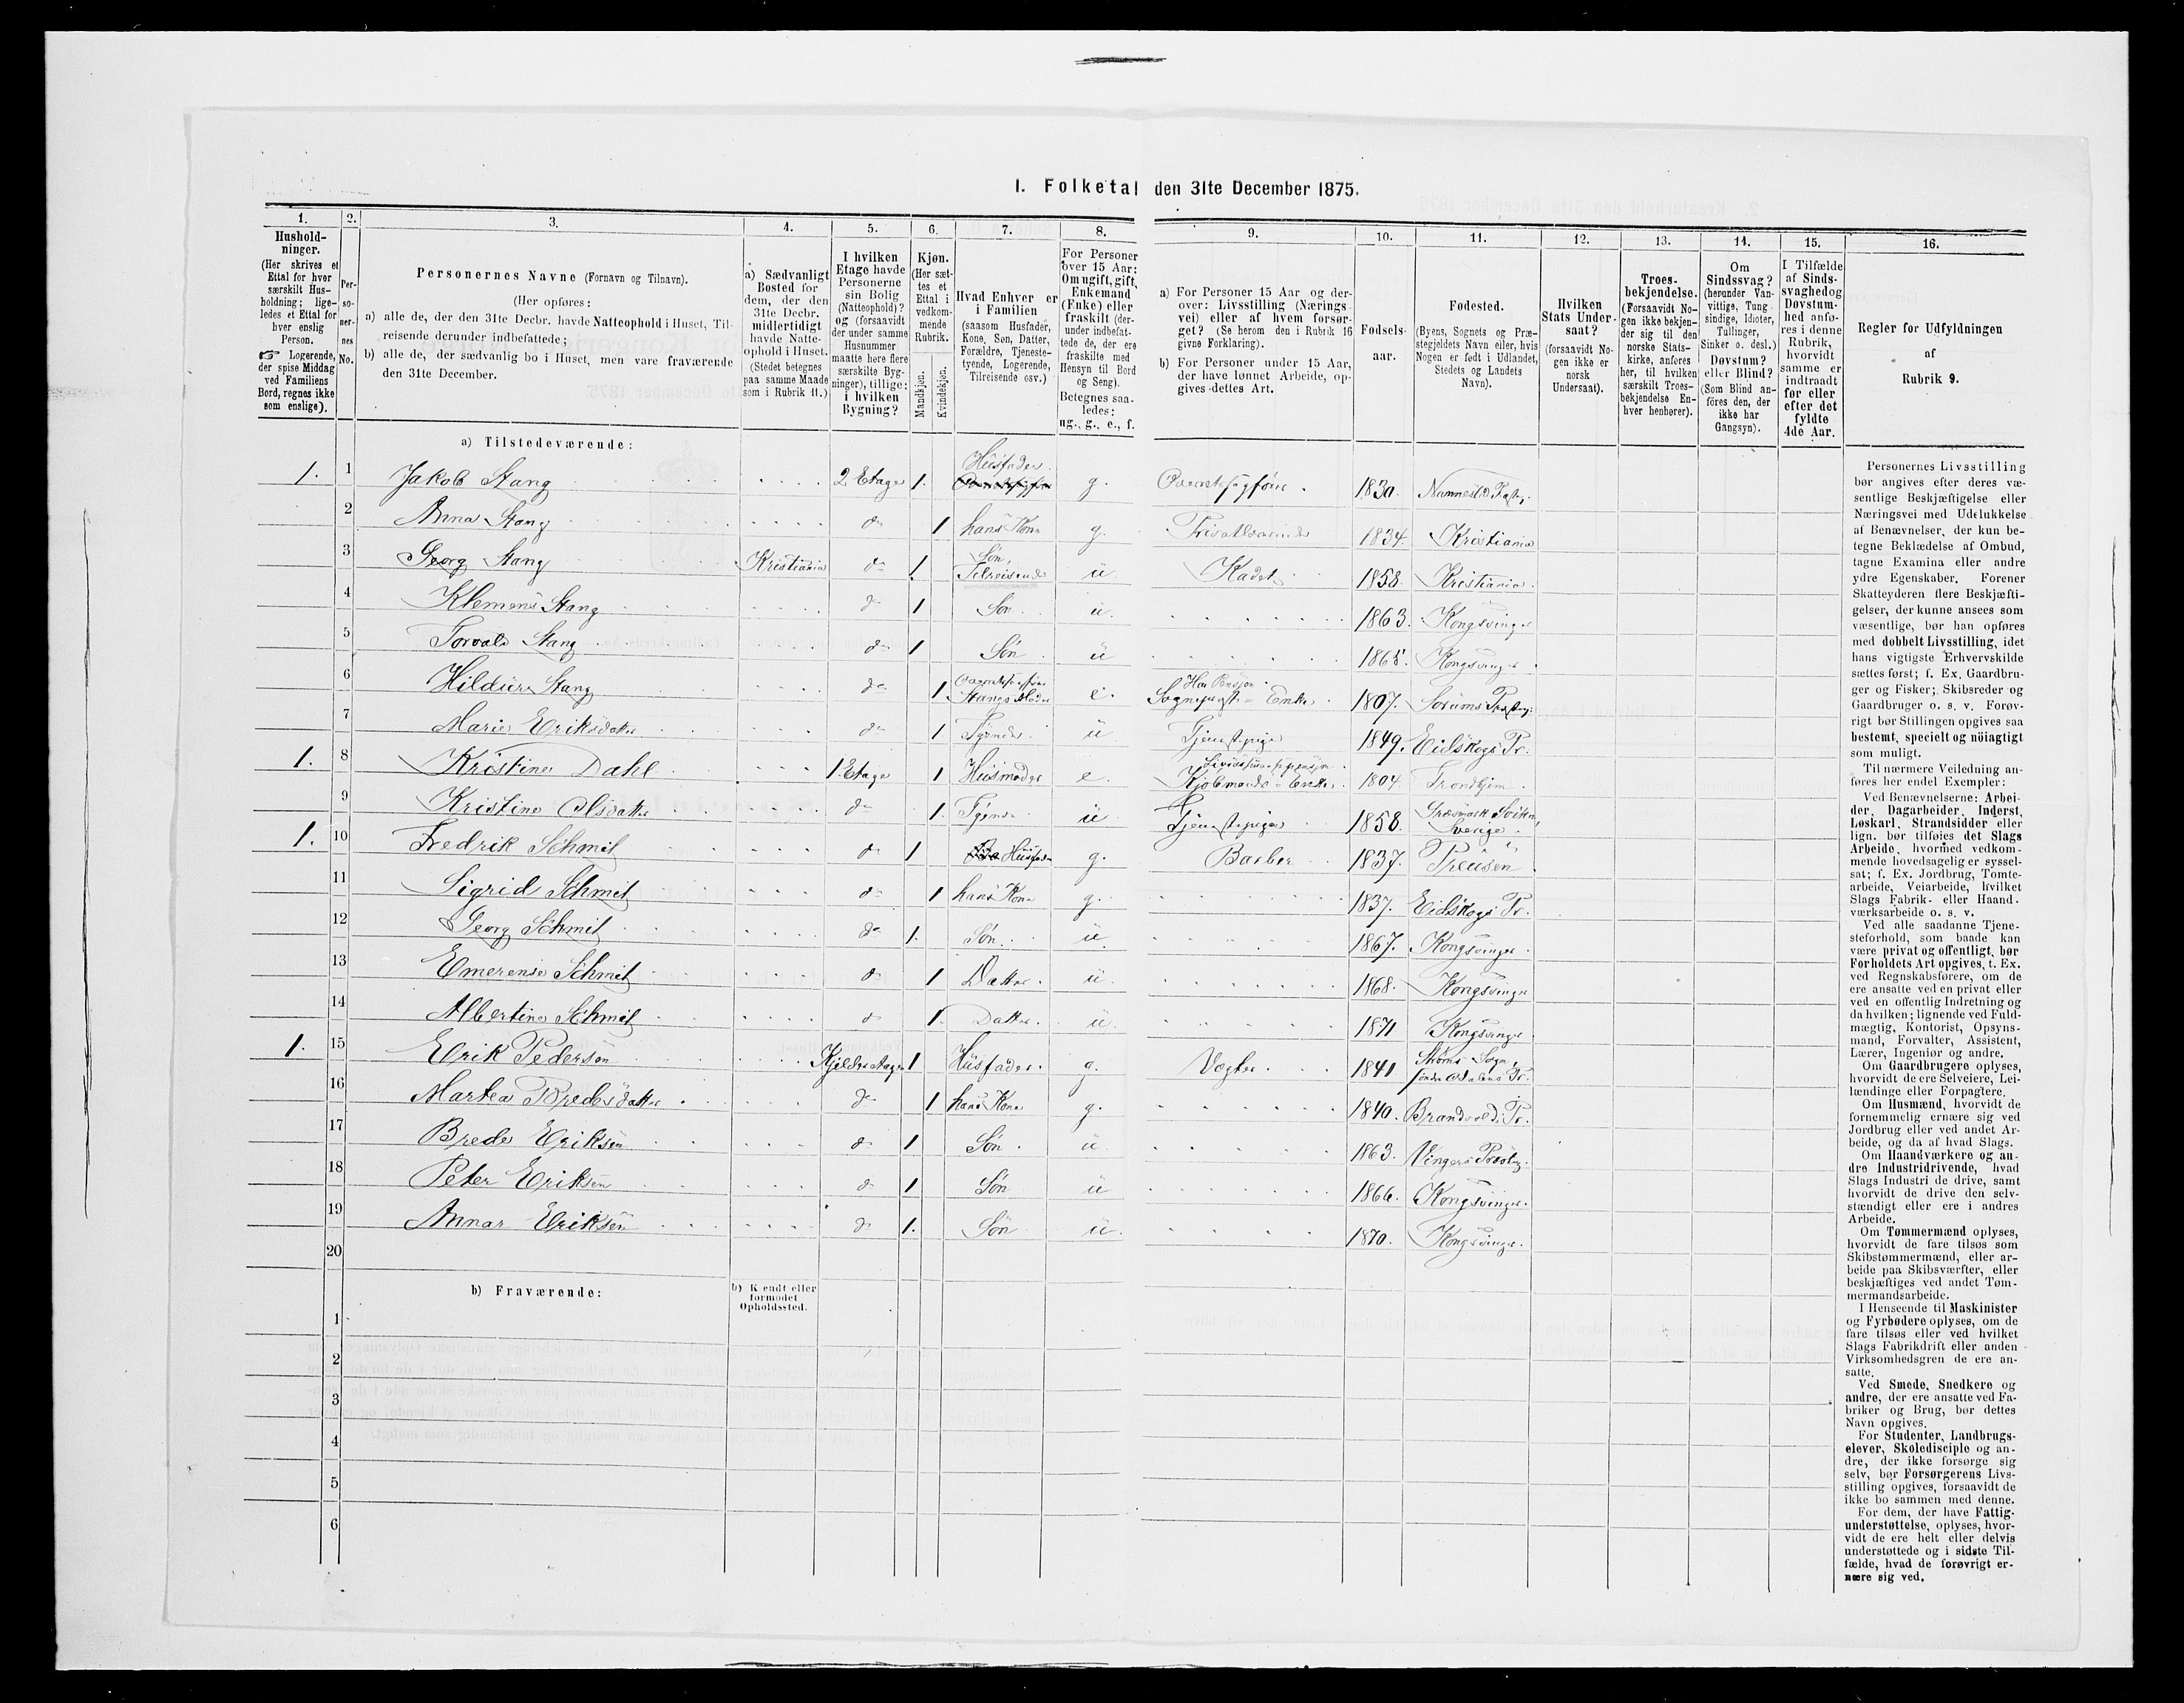 I. Folketal den 31te December 1875.
1. 2. 3. 4. 5. 6. 7. 8. 9. 10. 11. 12. 13. 14. 15. 16.
Hushold-
ninger.
(Her skrives et
Ettal for hver
særskilt Hus-
holdning; lige-
ledes et Ettal for
hver enslig
Person.
☞ Logerende,
der spise Middag
ved Familiens
Bord, regnes ikke
som enslige).
Per-
so-
ner-
nes
No.
Personernes Navne (Fornavn og Tilnavn).
(Her opføres:
a) alle de, der den 31te Decbr. havde Natteophold i Huset, Til-
reisende derunder indbefattede;
b) alle de, der sædvanlig bo i Huset, men vare fraværende
den 31te December.
a) Sædvanligt
Bosted for
dem, der den
31te Decbr.
midlertidigt
havde Natte-
ophold i Huset.
(Stedet betegnes
paa samme Maade
som i Rubrik 11.)
I hvilken
Etage havde
Personerne
sin Bolig
(Natteophold)?
og (forsaavidt
der under samme
Husnummer
maatte høre flere
særskilte Byg-
ninger), tillige:
i hvilken
Bygning?
Kjøn.
(Her sæt-
tes et
Ettal i
vedkom-
mende
Rubrik.
Mandkjøn.
Kvindekjøn.
Hvad Enhver er
i Familien
(saasom Husfader,
Kone, Søn, Datter,
Forældre, Tjeneste-
tyende, Logerende,
Tilreisende osv.)
For Personer
over 15 Aar:
Om ugift, gift,
Enkemand
(Enke) eller
fraskilt (der-
under indbefat-
tede de, der ere
fraskilte med
Hensyn til Bord
og Seng).
Betegnes saa-
ledes:
ug., g., e., f.
a) For Personer 15 Aar og der-
over: Livsstilling (Nærings-
vei) eller af hvem forsør-
get? (Se herom den i Rubrik 16
givne Forklaring).
b) For Personer under 15 Aar,
der have lønnet Arbeide, op-
gives dettes Art.
Fødsels-
aar.
Fødested.
(Byens, Sognets og Præ-
stegjeldets Navn eller, hvis
Nogen er født i Udlandet,
Stedets og Landets
Navn).
Hvilken
Stats Under-
saat?
(forsaavidt No-
gen ikke er
norsk
Undersaat).
Troes-
bekjendelse.
(Forsaavidt No-
gen ikke bekjen-
der sig til den
norske Stats-
kirke, anføres
her, til hvilken
særskilt Troes-
bekjendelse En-
hver henhører).
Om
Sindssvag?
(herunder Van-
vittige, Tung-
sindige, Idioter,
Tullinger,
Sinker o. desl.)
Døvstum?
eller Blind?
(Som Blind an-
føres den, der
ikke har
Gangsyn).
I Tilfælde
af Sinds-
svaghed og
Døvstum-
hed anfø-
res i denne
Rubrik,
hvorvidt
samme er
indtraadt
før eller
efter det
fyldte
4de Aar.
Regler for Udfyldningen
af
Rubrik 9.
a) Tilstedeværende:
1. 1 Jakob Stang 2 Etage 1. Husfader g. Overretssagfører. 1830. Nannestad
2 Anna Stang do 1 hans Kone g. 1834. Kristiania
3 Georg Stang Kristiania do 1 Søn, Tilreisende u Kadet 1858. Kristiania.
4 Klemens Stang do 1 Søn u. 1863. Kongsvinger
5 Torvald Stang do 1 Søn u 1868. Kongsvinger
6 Stang do 1 Stangs Moder e. Har Pension. Sogneprest-Enke 1807. Sørums
7 Marie Eriksdatter do 1 Tjener u Tjenestepige 1849. Eidskogs Pr.
1. 8 Kristine Dahl 1 Etage 1 Husmoder e. Kjøbmands-Enke. 1804. Trondhjem.
9 Kristine Olsdatter do 1. u Tjenestepige 1858. Sverige.
1. 10 Fredrik Schmit do 1 Husfader g. Barber 1837. Preusen
11 Sigrid Schmit do 1 hans Kone g. 1837. Eidskogs Pr.
12 Georg Schmit do 1. Søn u. 1867. Kongsvinger
13 Emerense Schmit do 1 Datter. u. 1868. Kongsvinger
14 Albertine Schmit do 1. Datter. u. 1871 Kongsvinger
1. 15 Erik Pedersen Kjelderetagen 1 Husfader. g. Vægter 1841 Sogn, søndre Odalens Pr.
16 Martea Bredesdatter do 1 hans Kone g. 1840. Brandvold Pr.
17 Brede Eriksen do 1 Søn. u 1863. Vingers Præstg.
18 Peter Eriksen do 1 Søn u 1866. Kongsvinger.
19 Annar Eriksen do 1. Søn u. 1870. Kongsvinger.
20
b) Fraværende:
b) Kjendt eller
formodet
Opholdssted.
1
2
3
4
5
6
Personernes Livsstilling
bør angives efter deres væ-
sentlige Beskjæftigelse eller
Næringsvei med Udelukkelse
af Benævnelser, der kun be-
tegne Beklædelse af Ombud,
tagne Examina eller andre
ydre Egenskaber. Forener
Skatteyderen flere Beskjæfti-
gelser, der kunne ansees som
væsentlige, bør han opføres
med dobbelt Livsstilling, idet
hans vigtigste Erhvervskilde
sættes først; f. Ex. Gaardbru-
ger og Fisker; Skibsreder og
Gaardbruger o. s. v. Forøv-
rigt bør Stillingen opgives saa
bestemt, specielt og nöiagtigt
som muligt.
Til nærmere Veiledning an-
føres her endel Exempler:
Ved Benævnelserne: Arbei-
der, Dagarbeider, Inderst,
Løskarl, Strandsidder eller
lign. bør tilføies det Slags
Arbeide, hvormed vedkom-
mende hovedsagelig er syssel-
sat; f. Ex. Jordbrug, Tomte-
arbeide, Veiarbeide, hvilket
Slags Fabrik- eller Haand-
værksarbeide o. s. v.
Ved alle saadanne Tjene-
steforhold, som baade kan
være privat og offentligt, bør
Forholdets Art opgives, t. Ex.
ved Regnskabsførere, om de
ere ansatte ved en privat eller
ved en offentlig Indretning og
da hvilken; lignende ved Fuld-
mægtig, Kontorist, Opsyns-
mand, Forvalter, Assistent,
Lærer, Ingeniør og andre.
Om Gaardbrugere oplyses,
hvorvidt de ere Selveiere, Lei-
lændinge eller Forpagtere.
Om Husmænd, hvorvidt de
fornemmelig ernære sig ved
Jordbrug eller ved andet Ar-
beide, og da af hvad Slags.
Om Haandværkere og an-
dre Industridrivende, hvad
Slags Industri de drive, samt
hvorvidt de drive den selv-
stændigt eller ere i andres
Arbeide.
Om Tømmermænd oplyses,
hvorvidt de fare tilsøs som
Skibstømmermænd, eller ar-
beide paa Skibsværfter, eller
beskjæftiges ved andet Tøm-
mermandsarbeide.
I Henseende til Maskinister
og Fyrbødere oplyses, om de
fare tilsøs eller ved hvilket
Slags Fabrikdrift eller anden
Virksomhedsgren de ere an-
satte.
Ved Smede, Snedkere og
andre, der ere ansatte ved Fa-
briker og Brug, bør dettes
Navn opgives.
For Studenter, Landbrugs-
elever, Skoledisciple og an-
dre, der ikke forsørge sig
selv, bør Forsørgerens Livs-
stilling opgives, forsaavidt de
ikke bo sammen med denne.
For dem, der have Fattig-
understøttelse, oplyses, hvor-
vidt de ere helt eller delvis
understøttede og i sidste Til-
fælde, hvad de forøvrigt er-
nære sig ved.